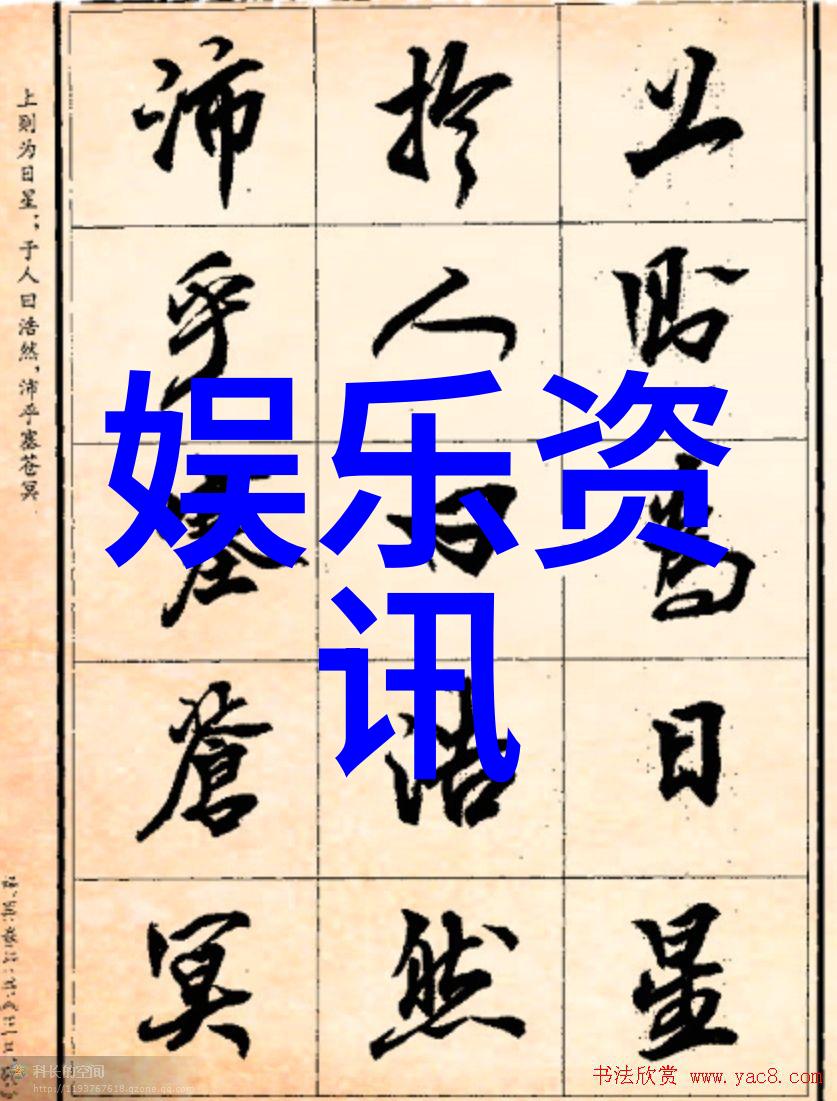 上則為日星
於人曰浩然
沛乎塞蒼冥
上则为日星；于人曰浩然，沛乎塞苍冥
娱乐资
讯
科长的空间
http://1193767618.qzone.qq.com
书法欣赏 www.yac8.com